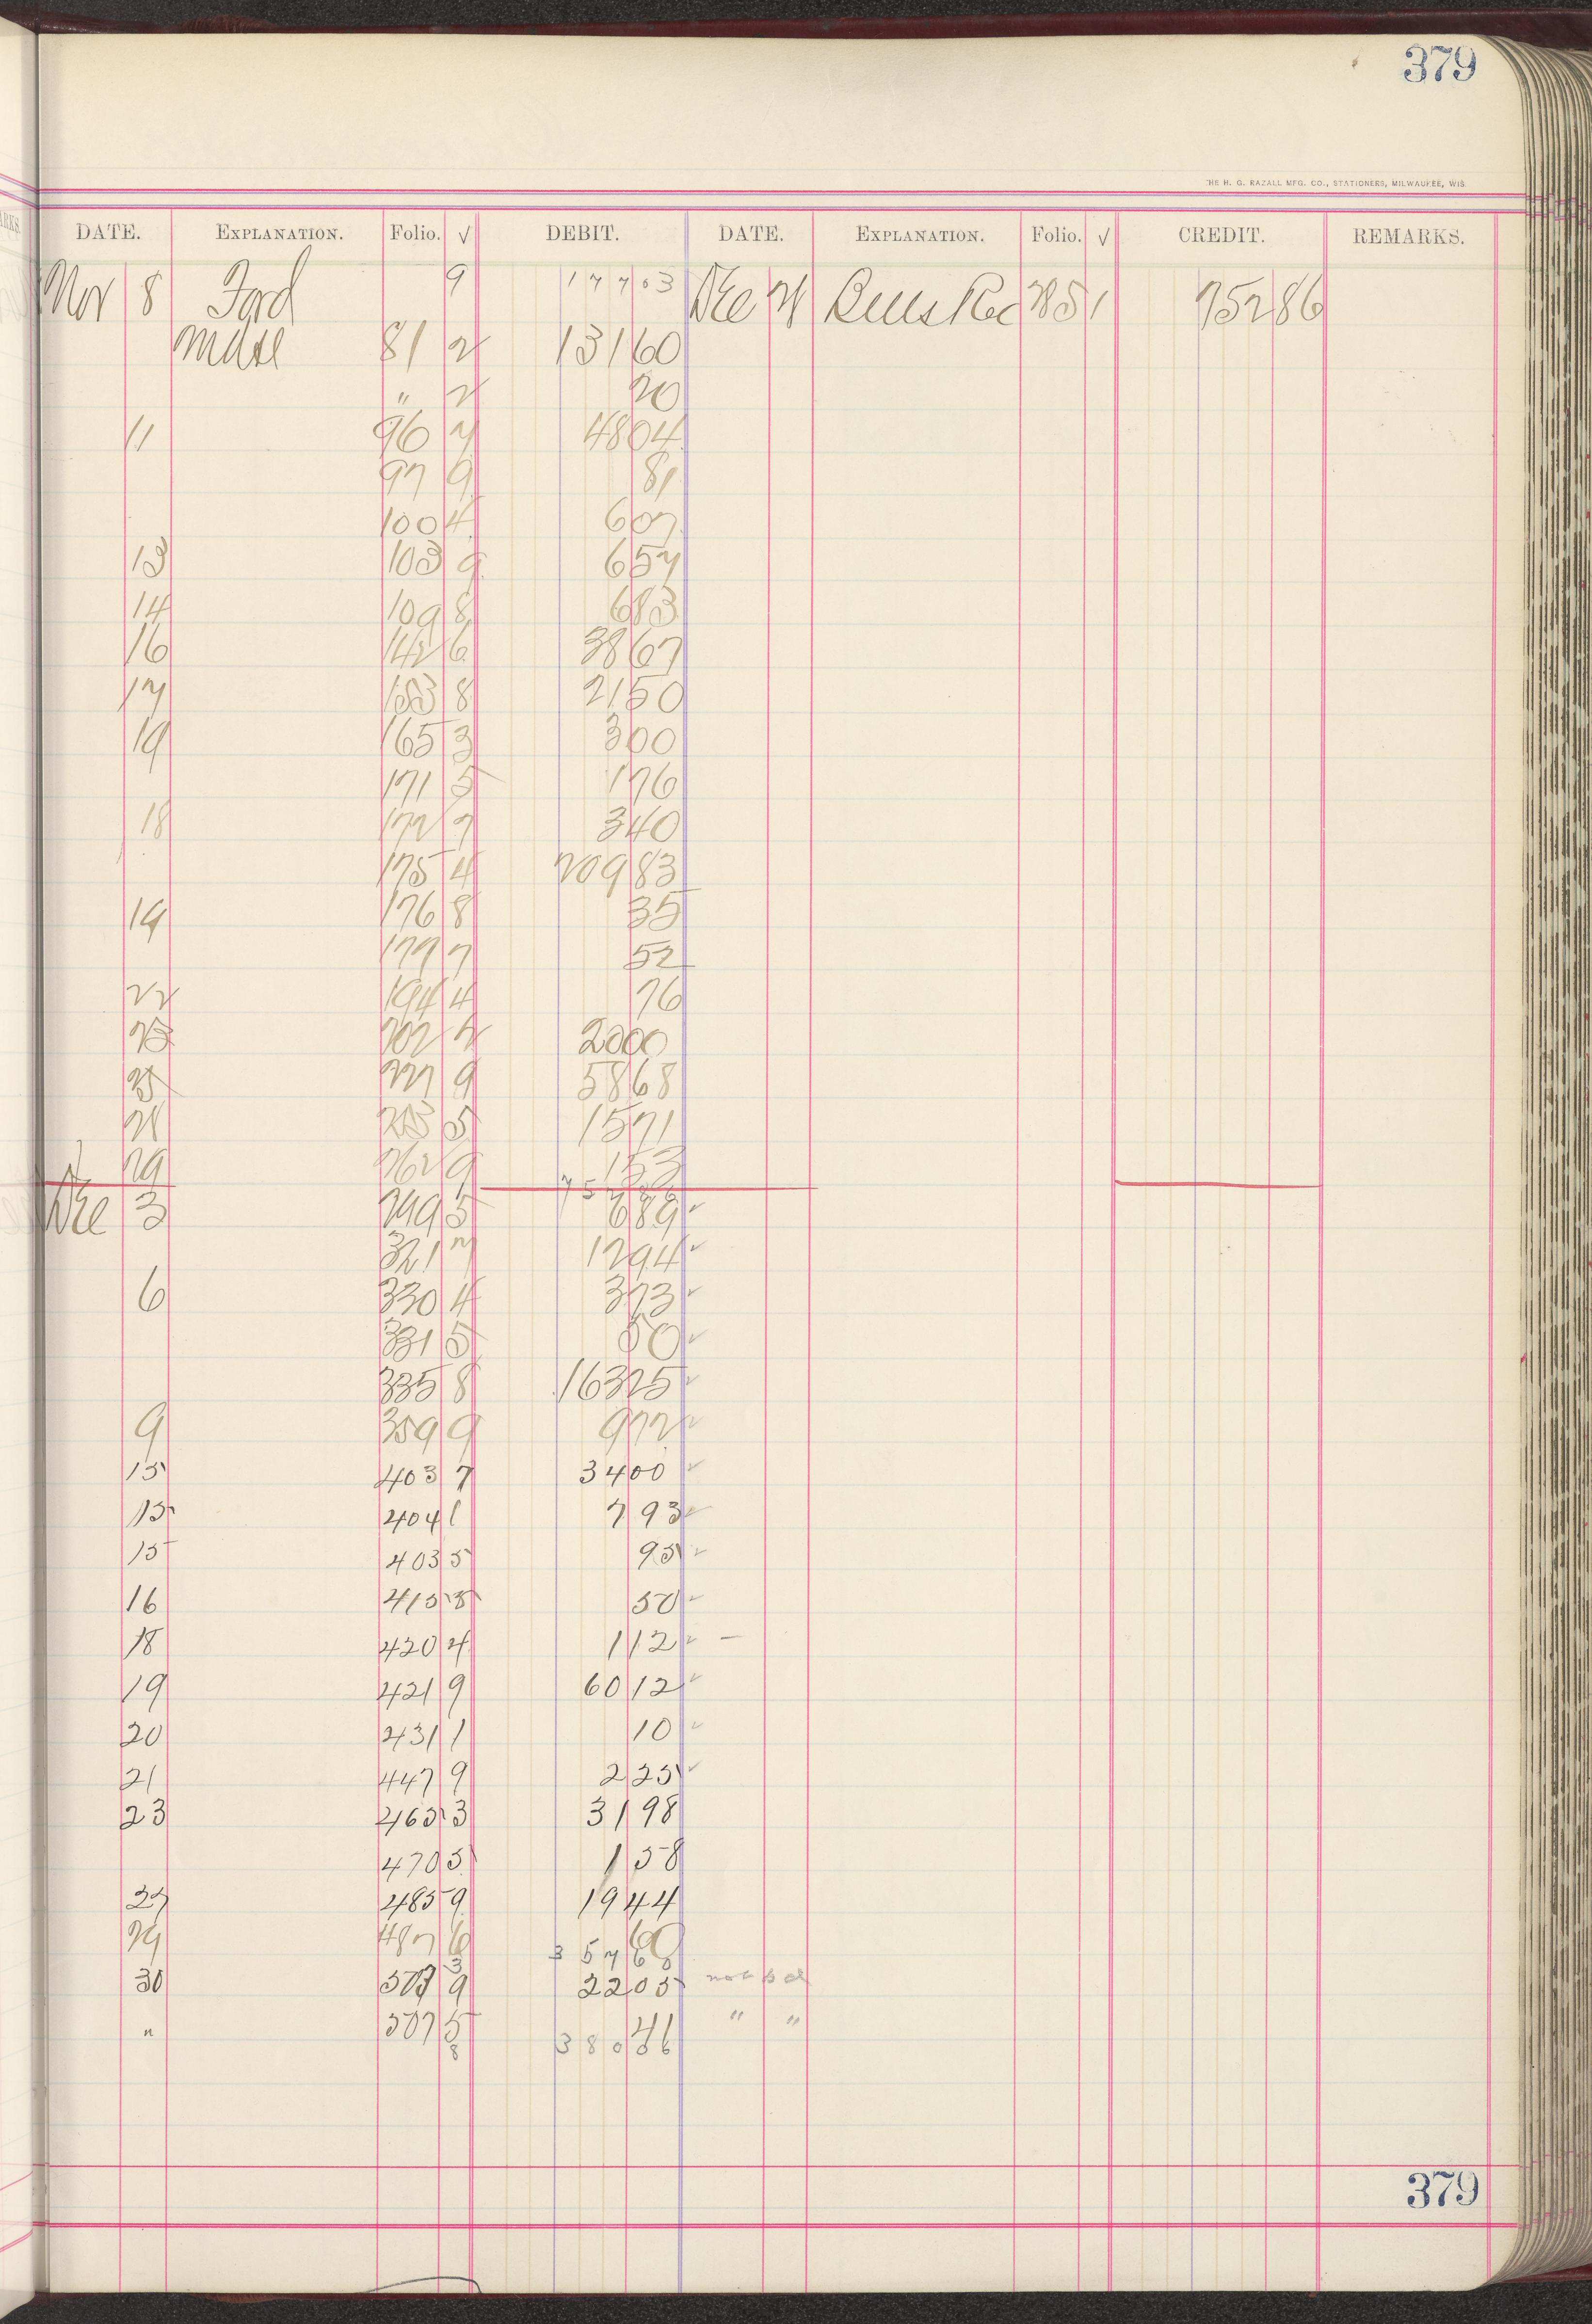 379
THE H. G. RAZALL MFG. CO., STATIONERS, MILWAUKEE, WIS.
DATE. EXPLANATION. Folio. √ DEBIT. DATE. EXPLANATION. Folio. √ CREDIT. REMARKS.
Nov 8 Ford 9 177 03 Dec 285 1 752 86
Mdse 81 2 131 60
" 2 20
11 96 7 48 04
97 9 81
100 4 6 07
13 103 9 6 57
14 109 8 6 83
16 142 6 38 67
17 153 8 21 50
19 165 3 3 00
171 5 1 76
18 172 7 3 40
175 4 209 83
19 176 8 35
179 7 52
22 194 4 76
23 202 2 20 00
25 227 9 58 68
5 15 71
29 262 9 1 53
Dec 3 299 5 6 89
321 7 12 94
6 330 4 3 73
331 5 50
335 8 163 25
9 359 9 9 72
15 403 7 34 00
15 404 1 7 93
15 403 5 95
16 415 8 50
18 420 4 1 12 —
19 421 9 60 12
20 431 1 10
21 447 9 2 25
23 465 3 31 98
470 5 1 58
27 485 9 19 44
29 487 6 60
357 68
30 507 9 22 05 not Bd
" 507 5 " "
380 36
379